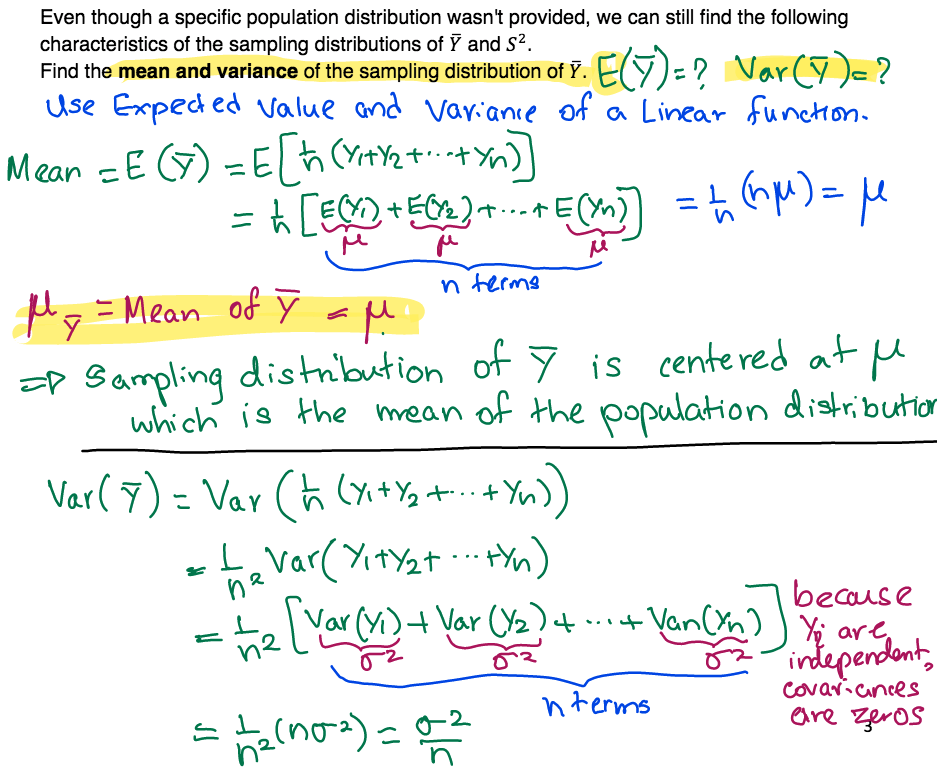 Even though a specific population distribution wasn't provided, we can still find the following
characteristics of the sampling distributions of Ȳ and S².
Find the mean and variance of the sampling distribution of Ȳ. E(Ȳ)=? Var(Ȳ)=?
Use Expected Value and Variance of a Linear function.
Mean = E(Ȳ) = E[1/n (Y₁+Y₂+···+Yn)]
= 1/n [E(Y₁) + E(Y₂) + ... + E(Yn)] = 1/n (nμ) = μ
μ μ μ
n terms
μ_Ȳ = Mean of Ȳ = μ.
⇒ Sampling distribution of Ȳ is centered at μ
which is the mean of the population distribution
Var(Ȳ) = Var(1/n (Y₁+Y₂+···+Yn))
= 1/n² Var(Y₁+Y₂+ ···+Yn)
= 1/n² [Var(Y₁) + Var(Y₂) + ··· + Var(Yn)]
σ² σ² σ²
n terms
because
Yi are
independent,
covariances
are zeros
= 1/n² (nσ²) = σ²/n
3